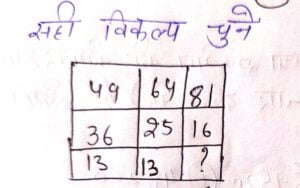 सही विकल्प चुने
49 64 81
36 25 16
13 13 ?